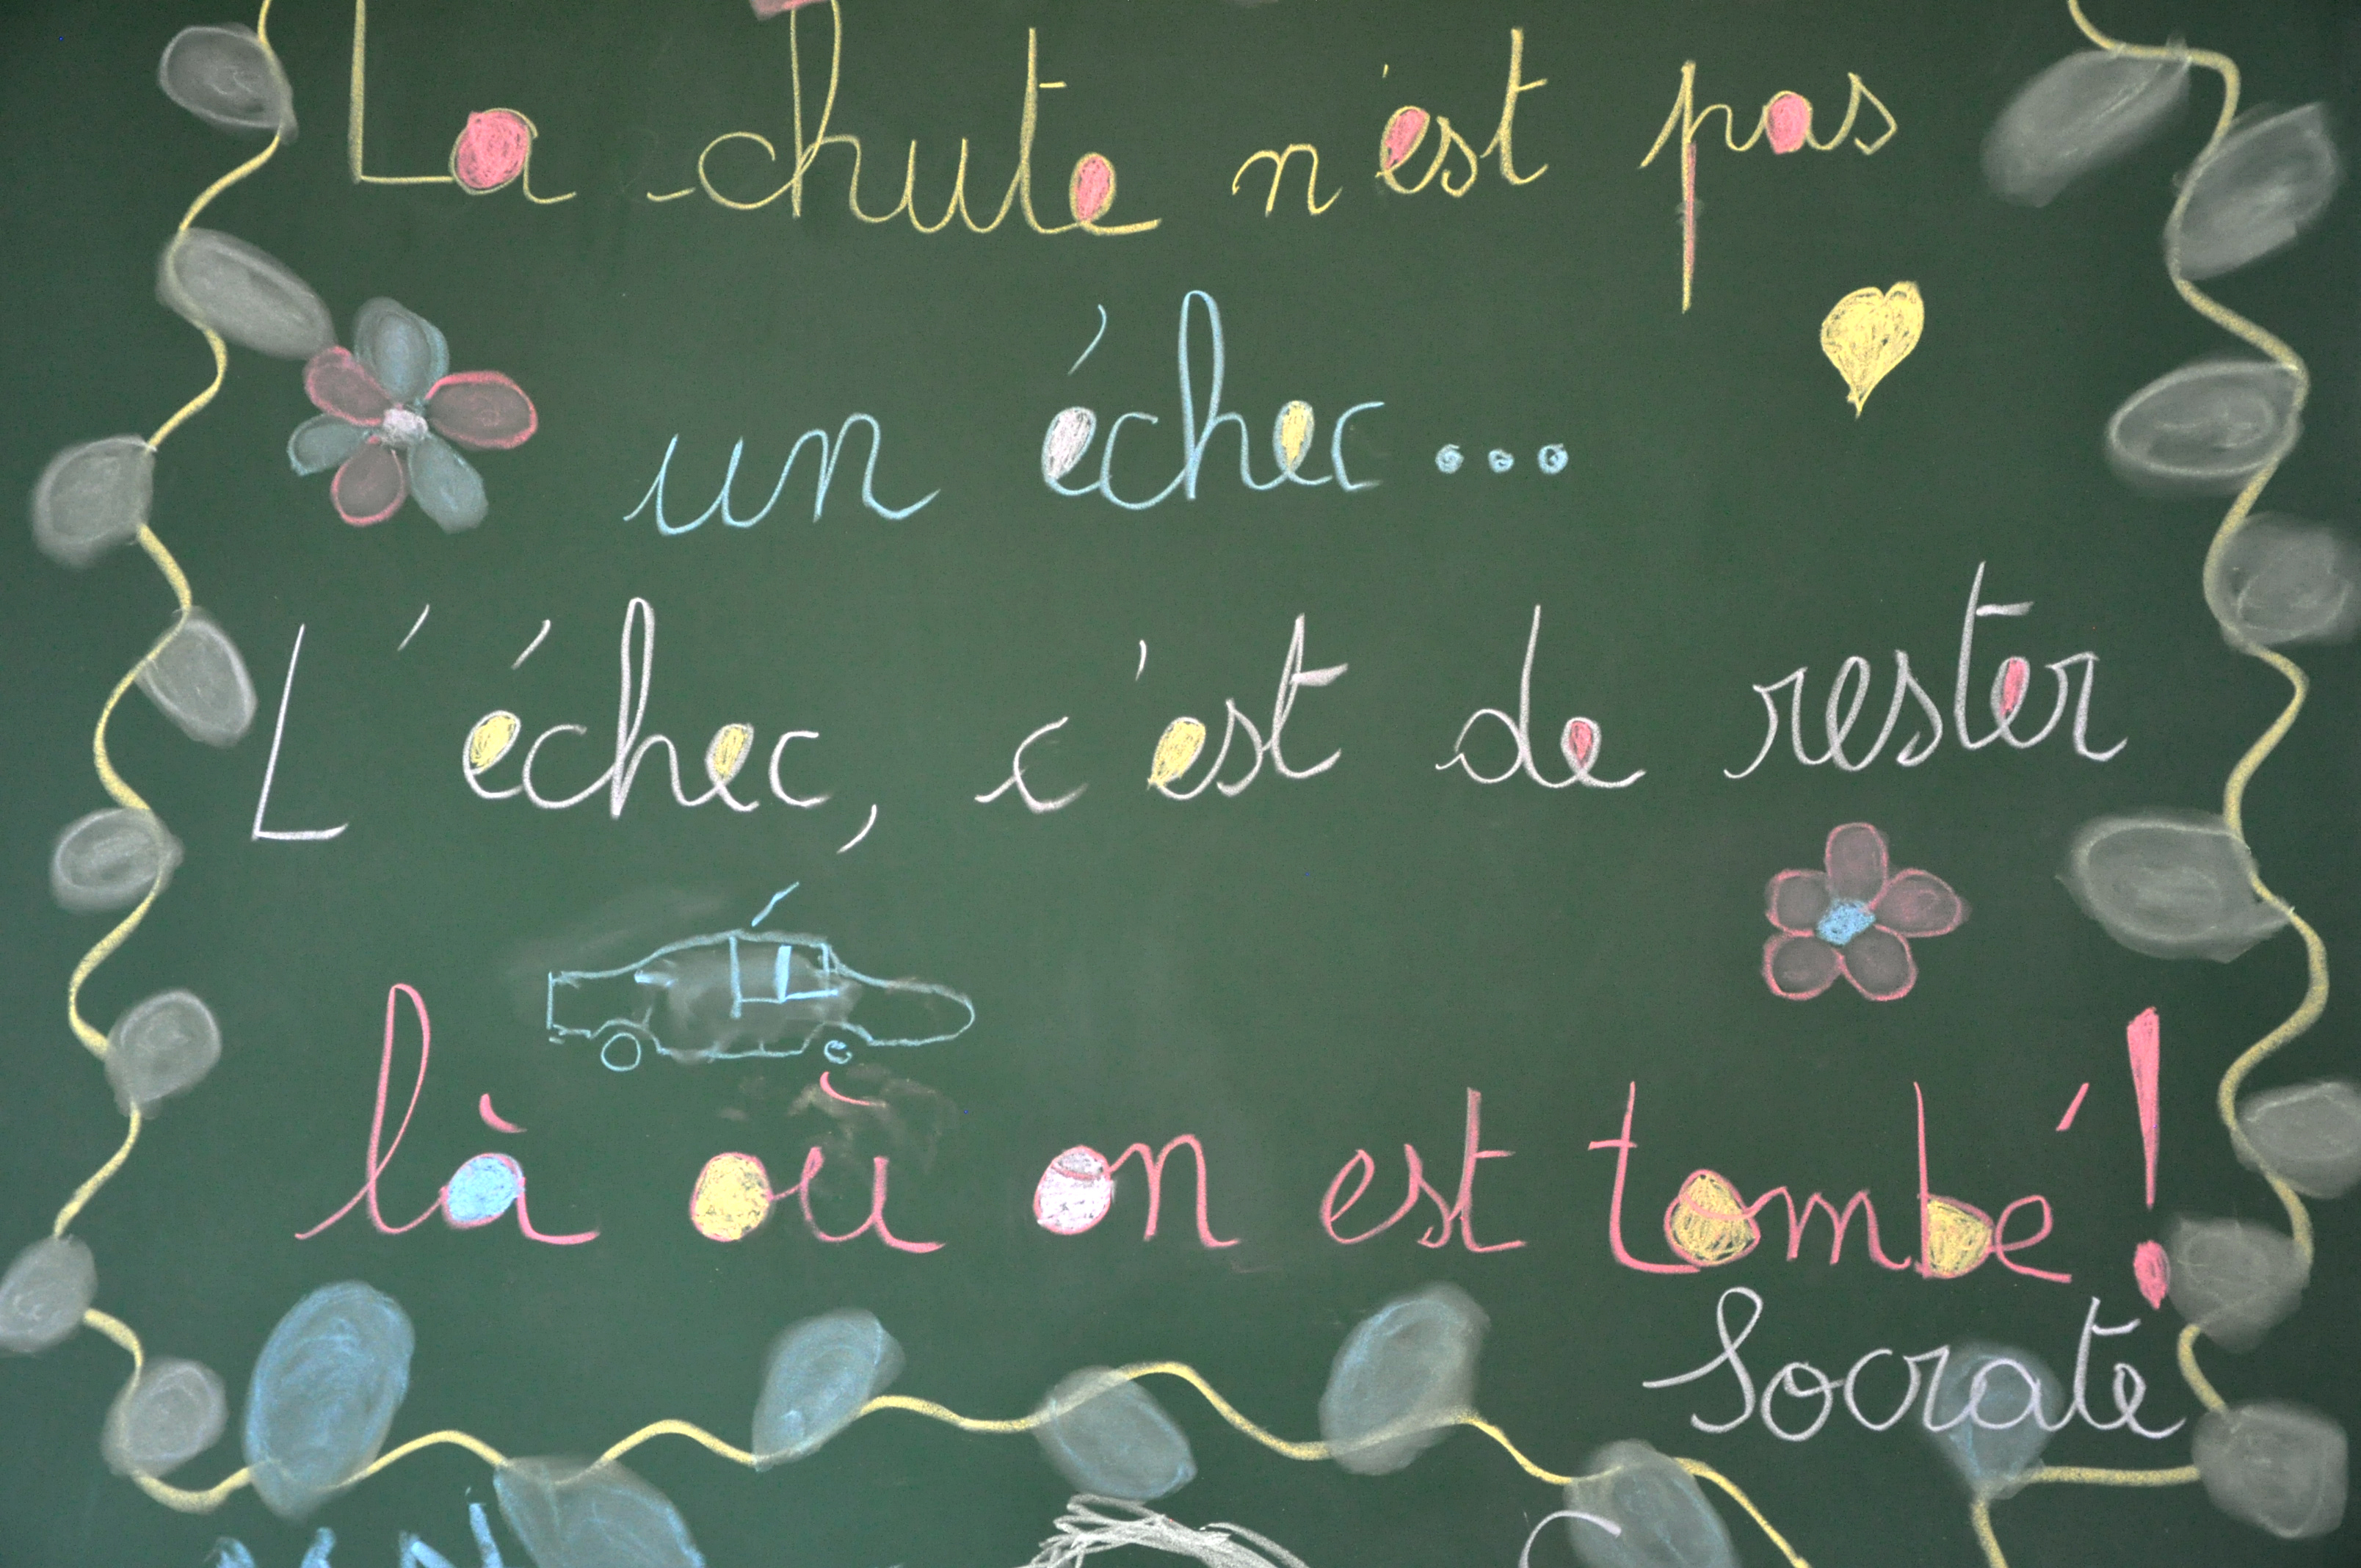 La chute n'est pas
un échec...
L'échec, c'est de rester
là où on est tombé!
Socrate